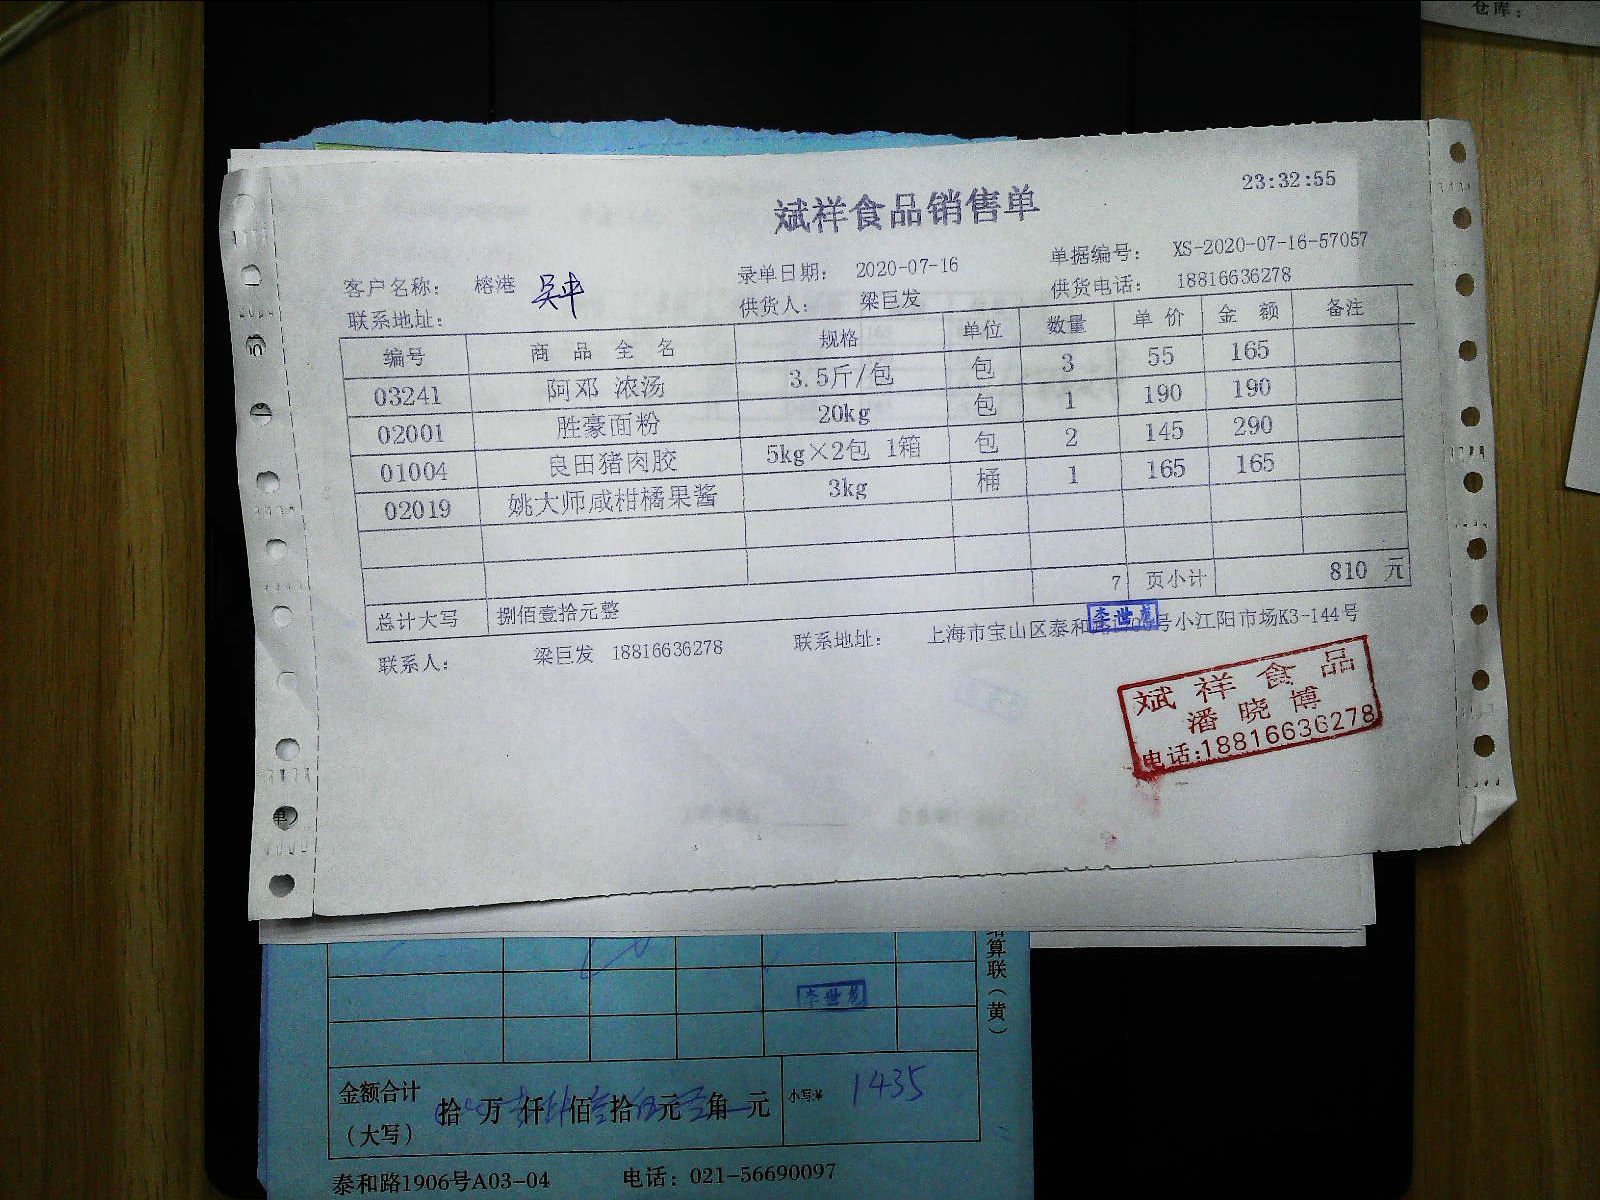 仓库：
23:32:55
斌祥食品销售单
客户名称： 榕港 吴中 录单日期： 2020-07-16 单据编号： XS-2020-07-16-57057
联系地址： 供货人： 梁巨发 供货电话： 18816636278
编号 商品全名 规格 单位 数量 单价 金额 备注
03241 阿邓 浓汤 3.5斤/包 包 3 55 165
02001 胜豪面粉 20kg 包 1 190 190
01004 良田猪肉胶 5kg×2包 1箱 包 2 145 290
02019 姚大师咸柑橘果酱 3kg 桶 1 165 165
7 页小计 810 元
总计大写 捌佰壹拾元整
联系人： 梁巨发 18816636278 联系地址： 上海市宝山区泰和 号小江阳市场K3-144号
李世
斌祥食品
潘晓博
电话:18816636278
算联（黄）
李世
金额合计（大写） 拾 万 仟 佰 拾 元 角 元 小写:¥ 1435
泰和路1906号A03-04 电话：021-56690097